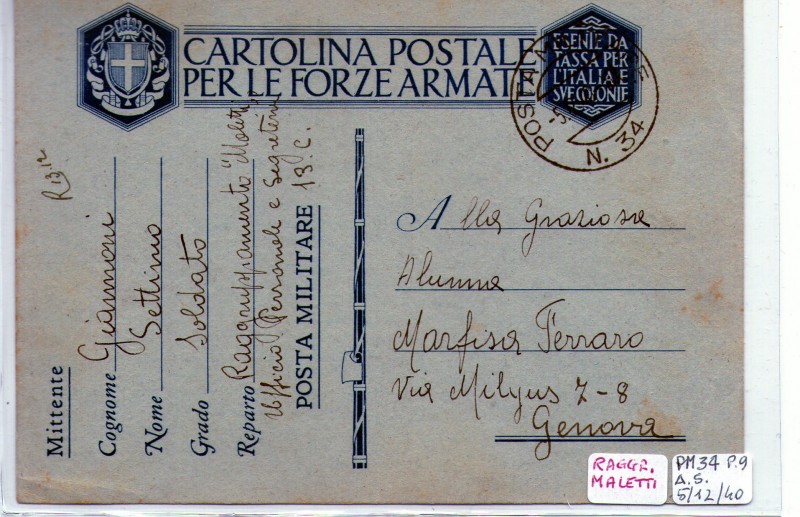 CARTOLINA POSTALE
PER LE FORZE ARMATE
ESENTE DA
TASSA PER
L'ITALIA E
SVE COLONIE
POSTA MILITARE
N. 34
R 13.12
Mittente
Cognome Giannoni
Nome Settimo
Grado Soldato
Reparto Raggruppamento "Maletti"
Ufficio Personale e Segreteria
POSTA MILITARE 13. C.
Alla Graziosa
Alunna
Marfisa Ferraro
Via Milyus 7-8
Genova
RAGGR.
MALETTI
PM 34 P.9
A.S.
5/12/40